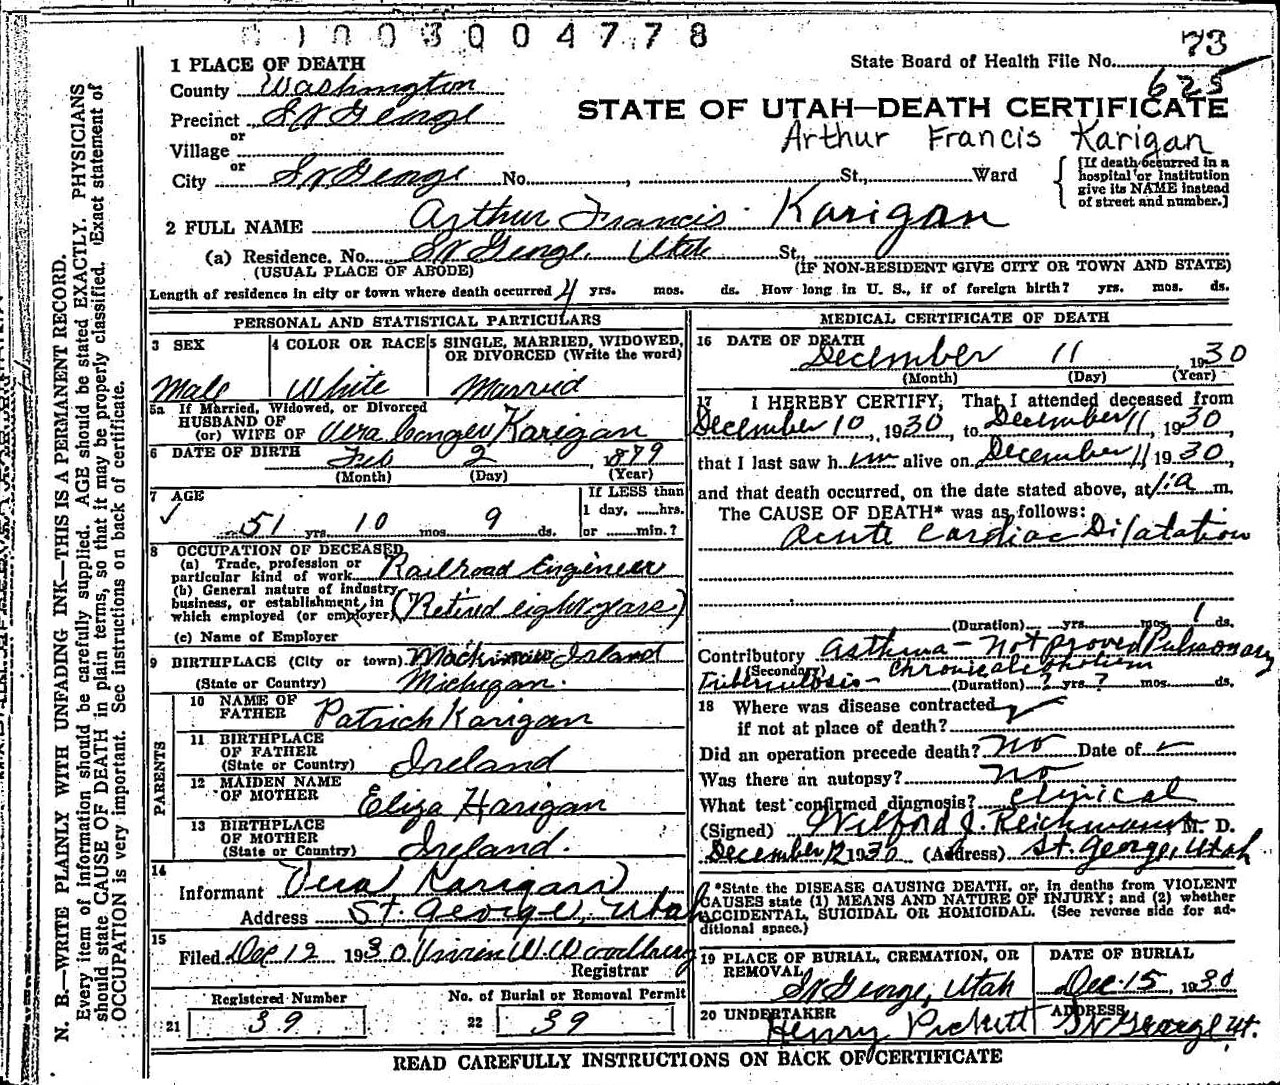 1003004778
73
State Board of Health File No.
625
1 PLACE OF DEATH
County Washington
STATE OF UTAH—DEATH CERTIFICATE
Precinct St George
Arthur Francis Karigan
or
Village
or
City St George No. , St., Ward
[If death occurred in a
hospital or Institution
give its NAME instead
of street and number.]
2 FULL NAME Arthur Francis Karigan
(a) Residence. No. St George, Utah St.,
(USUAL PLACE OF ABODE) (IF NON-RESIDENT GIVE CITY OR TOWN AND STATE)
Length of residence in city or town where death occurred 4 yrs. mos. ds. How long in U. S., if of foreign birth? yrs. mos. ds.
PERSONAL AND STATISTICAL PARTICULARS
3 SEX
Male
4 COLOR OR RACE
White
5 SINGLE, MARRIED, WIDOWED,
OR DIVORCED (Write the word)
Married
5a If Married, Widowed, or Divorced
HUSBAND OF
(or) WIFE OF Vera Conger Karigan
6 DATE OF BIRTH Feb 2, 1879
(Month) (Day) (Year)
7 AGE
51 yrs. 10 mos. 9 ds.
If LESS than
1 day, hrs.
or min.?
8 OCCUPATION OF DECEASED
(a) Trade, profession or
particular kind of work Railroad Engineer
(b) General nature of industry,
business, or establishment in
which employed (or employer) (Retired eight years)
(c) Name of Employer
9 BIRTHPLACE (City or town) Mackinaw Island
(State or Country) Michigan.
PARENTS
10 NAME OF
FATHER Patrick Karigan
11 BIRTHPLACE
OF FATHER
(State or Country) Ireland
12 MAIDEN NAME
OF MOTHER Eliza Harigan
13 BIRTHPLACE
OF MOTHER
(State or Country) Ireland.
14
Informant Vera Karigan
Address St. George, Utah
15
Filed Dec 12 1930 W. Woodbury
Registrar
Registered Number
21 39
No. of Burial or Removal Permit
22 39
MEDICAL CERTIFICATE OF DEATH
16 DATE OF DEATH
December 11 1930
(Month) (Day) (Year)
17 I HEREBY CERTIFY, That I attended deceased from
December 10, 1930, to December 11, 1930,
that I last saw h im alive on December 11 1930,
and that death occurred, on the date stated above, at 1 a m.
The CAUSE OF DEATH* was as follows:
Acute Cardiac Dilatation
(Duration) yrs. mos. 1 ds.
Contributory Asthma - Not proved Pulmonary
(Secondary) Chronic alcoholism
Tuberculosis - (Duration) ? yrs. ? mos. ds.
18 Where was disease contracted
if not at place of death?
Did an operation precede death? No Date of
Was there an autopsy? no
What test confirmed diagnosis? Clinical
(Signed) Wilford J. Reichmann M. D.
December 12 1930 (Address) St. George, Utah
*State the DISEASE CAUSING DEATH, or, in deaths from VIOLENT
CAUSES state (1) MEANS AND NATURE OF INJURY; and (2) whether
ACCIDENTAL, SUICIDAL OR HOMICIDAL. (See reverse side for ad-
ditional space.)
19 PLACE OF BURIAL, CREMATION, OR
REMOVAL
St George, Utah
DATE OF BURIAL
Dec. 15, 1930
20 UNDERTAKER
Henry Pickett
ADDRESS
St George Ut.
READ CAREFULLY INSTRUCTIONS ON BACK OF CERTIFICATE
N. B.—WRITE PLAINLY WITH UNFADING INK—THIS IS A PERMANENT RECORD.
Every item of information should be carefully supplied. AGE should be stated EXACTLY. PHYSICIANS
should state CAUSE OF DEATH in plain terms, so that it may be properly classified. Exact statement of
OCCUPATION is very important. See instructions on back of certificate.